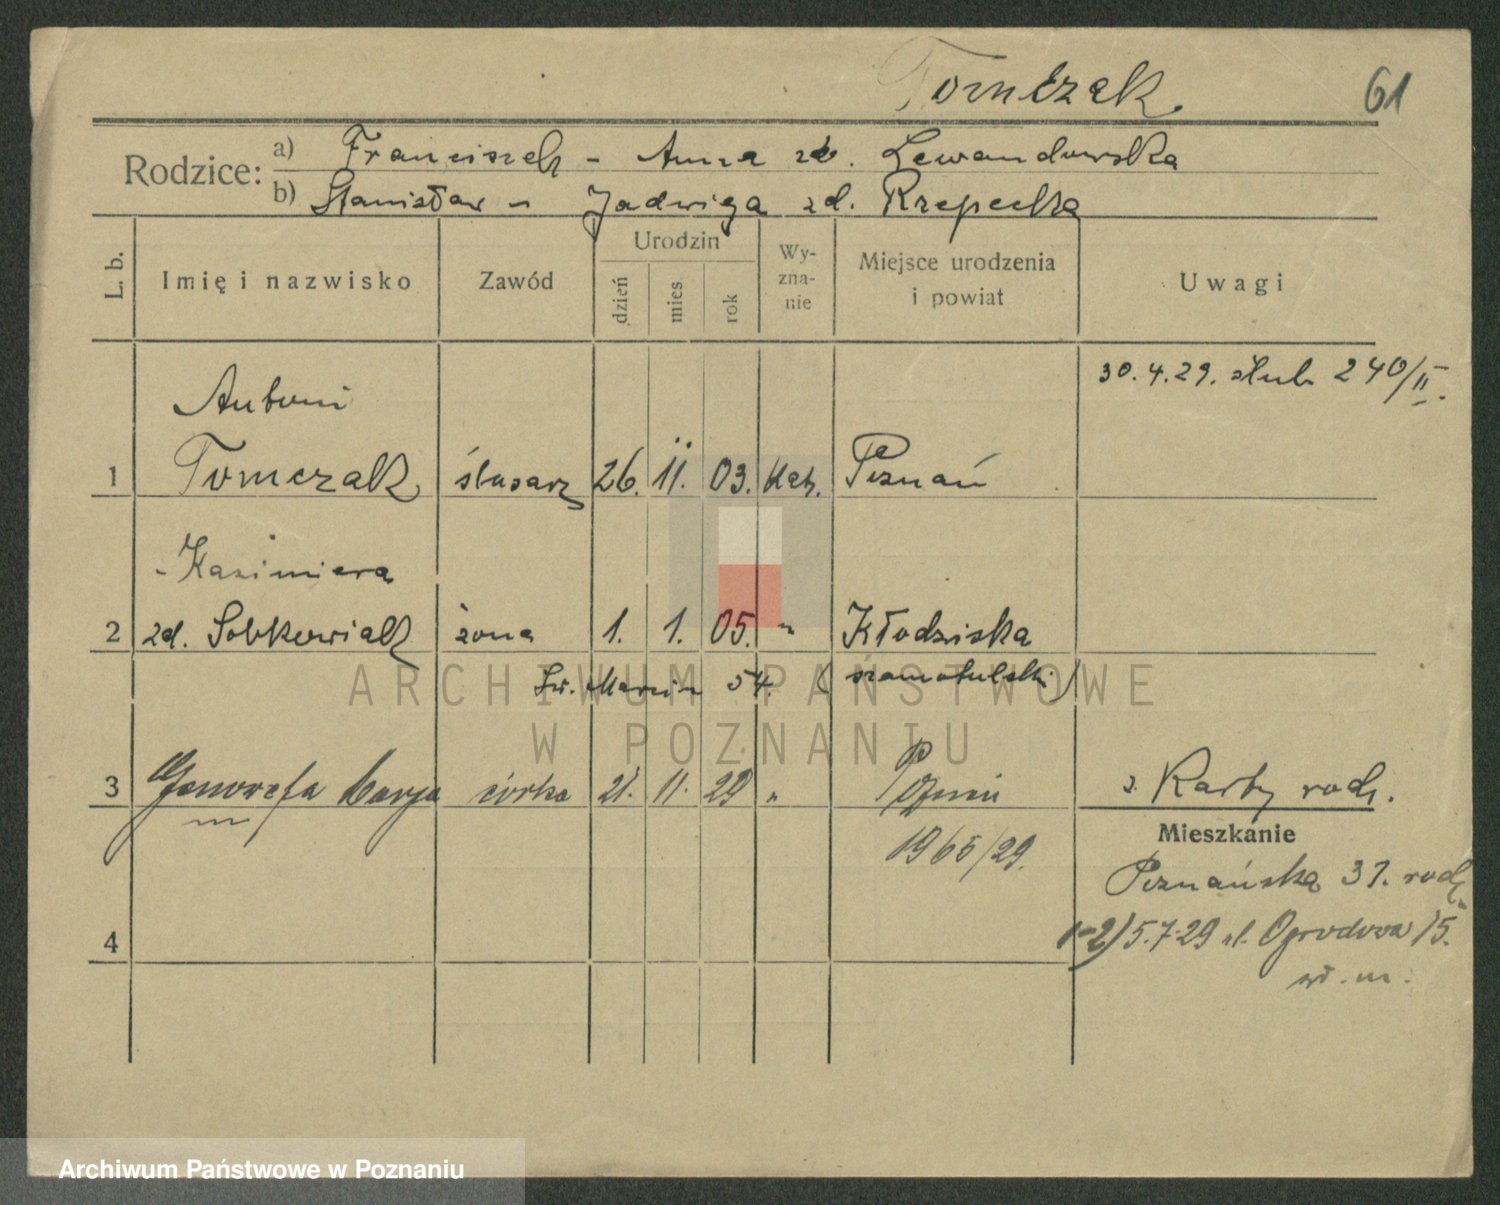 Tomczak.
61
Rodzice:
a) Franciszek - Anna zd. Lewandowska
b) Stanisław - Jadwiga zd. Rzepecka
L. b.
Imię i nazwisko
Zawód
Urodzin
dzień
mies.
rok
Wy-
zna-
nie
Miejsce urodzenia
i powiat
Uwagi
30.4.29. ślub 240/II.
Antoni
1 Tomczak ślusarz 26. 11. 03. kat. Poznań
- Kazimiera
2 zd. Sobkowiak żona 1. 1. 05. " Kłodziska
Św. Marcin 54. (szamotulski)
3 Genowefa Marja córka 21. 11. 29 " Poznań
z Karty rodz.
1965/29.
Mieszkanie
Poznańska 37. rodz.
4
1-2) 5.7.29 ul. Ogrodowa 15.
wł. m.
ARCHIWUM PAŃSTWOWE
W POZNANIU
Archiwum Państwowe w Poznaniu